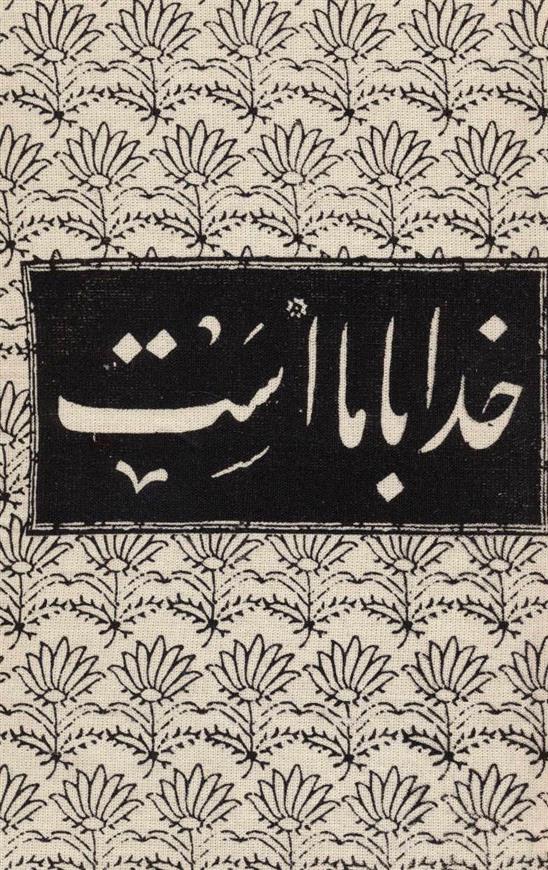 خدا با ما است